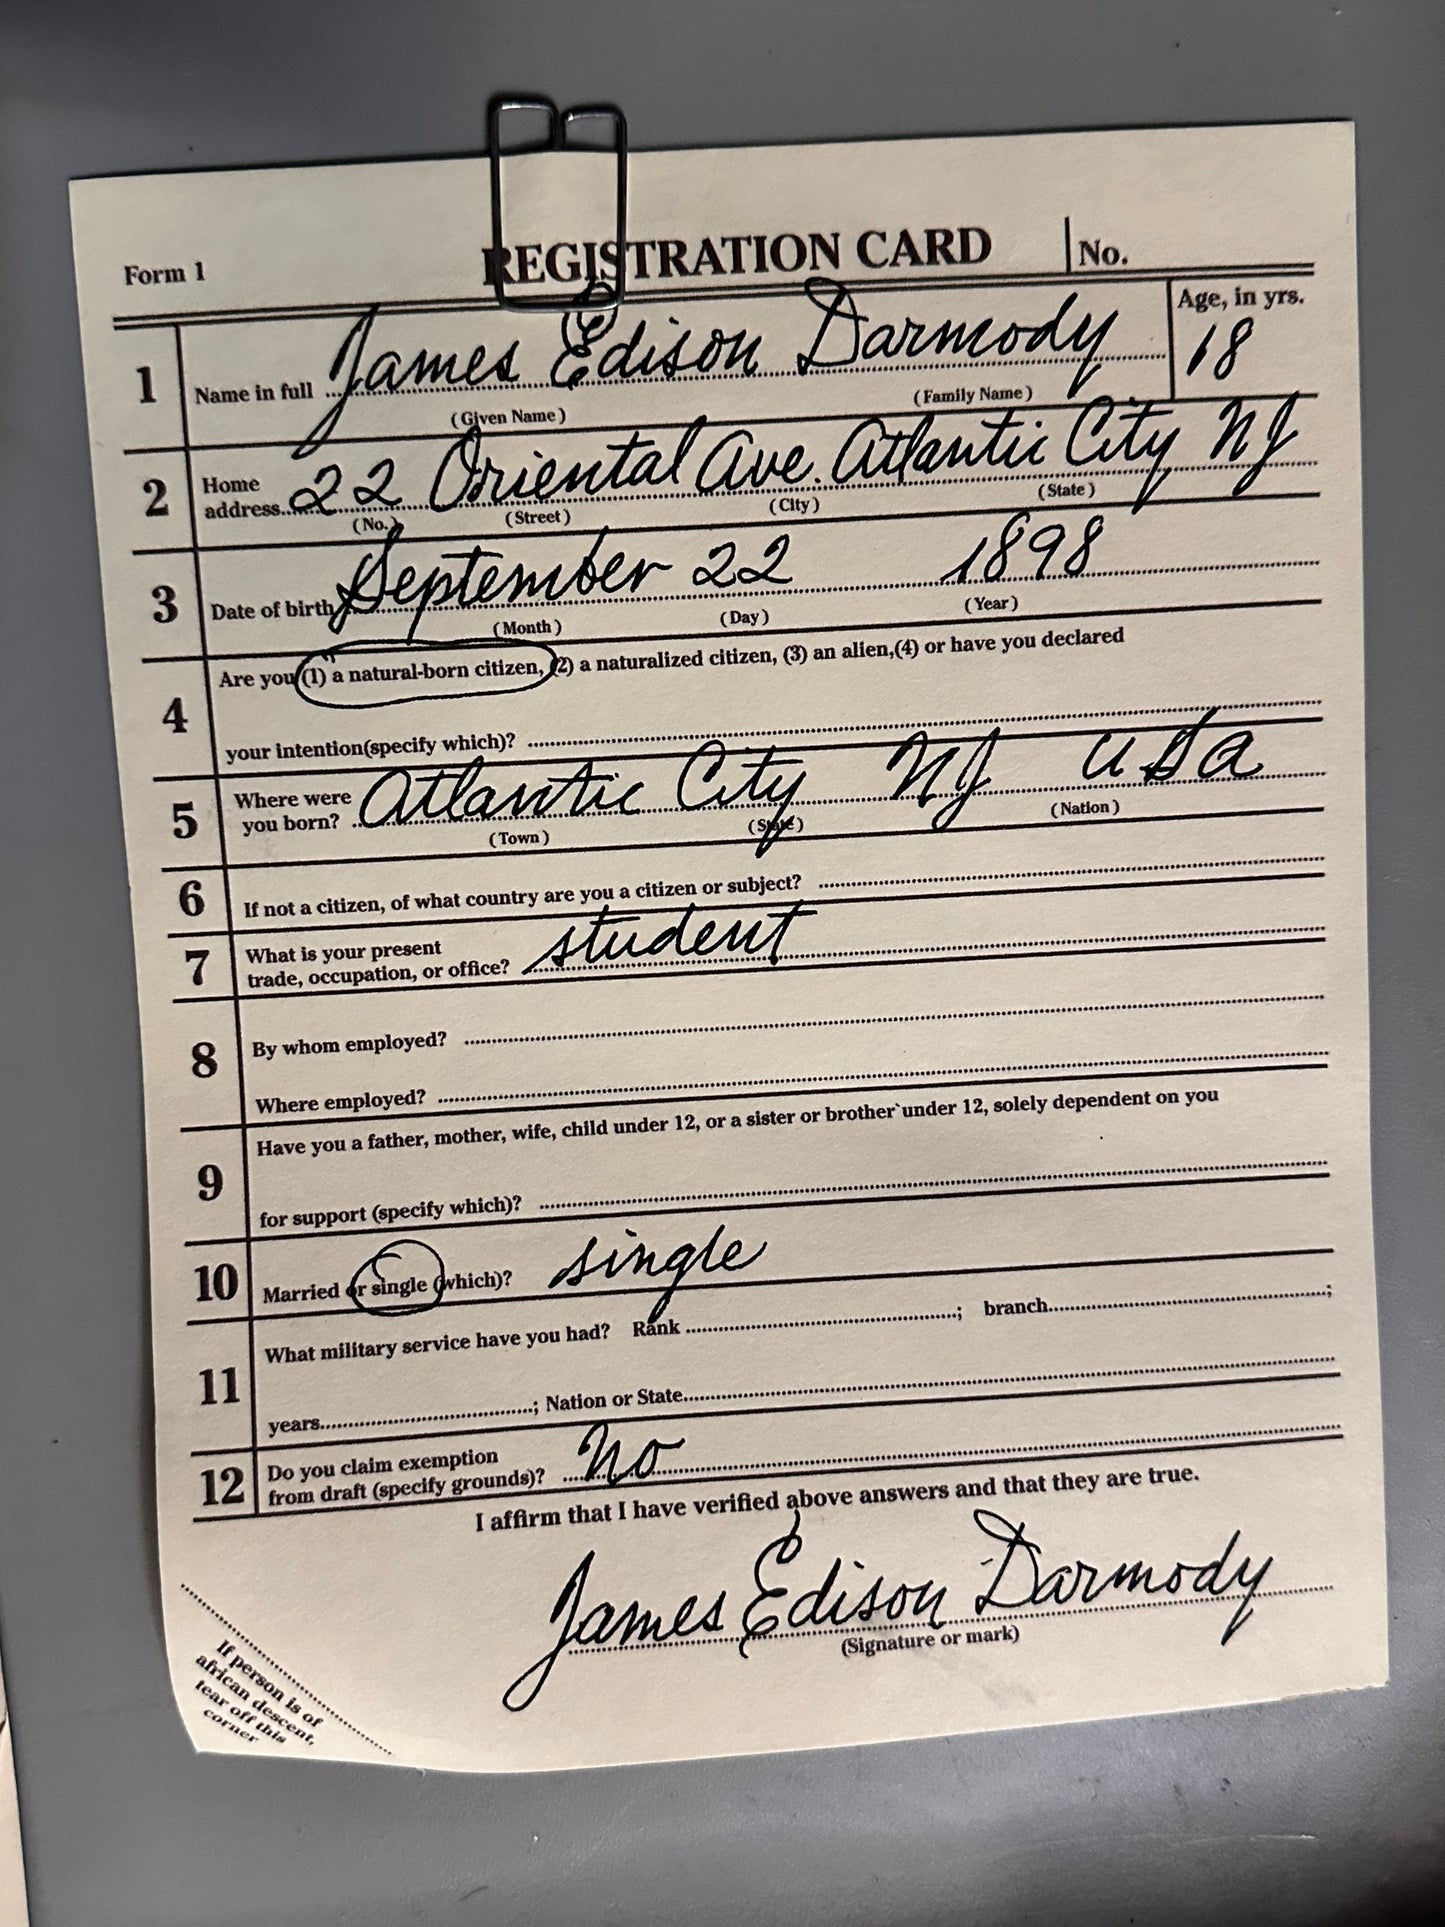 Form 1 REGISTRATION CARD No.
1 Name in full James Edison Darmody Age, in yrs. 18
(Given Name) (Family Name)
2 Home address 22 Oriental Ave. Atlantic City NJ
(No.) (Street) (City) (State)
3 Date of birth September 22 1898
(Month) (Day) (Year)
4 Are you (1) a natural-born citizen, (2) a naturalized citizen, (3) an alien,(4) or have you declared
your intention(specify which)?
5 Where were you born? Atlantic City NJ USA
(Town) (State) (Nation)
6 If not a citizen, of what country are you a citizen or subject?
7 What is your present
trade, occupation, or office? student
8 By whom employed?
Where employed?
9 Have you a father, mother, wife, child under 12, or a sister or brother`under 12, solely dependent on you
for support (specify which)?
10 Married or single (which)? single
11 What military service have you had? Rank ; branch ;
years ; Nation or State
12 Do you claim exemption
from draft (specify grounds)? No
I affirm that I have verified above answers and that they are true.
James Edison Darmody
(Signature or mark)
If person is of
african descent,
tear off this
corner